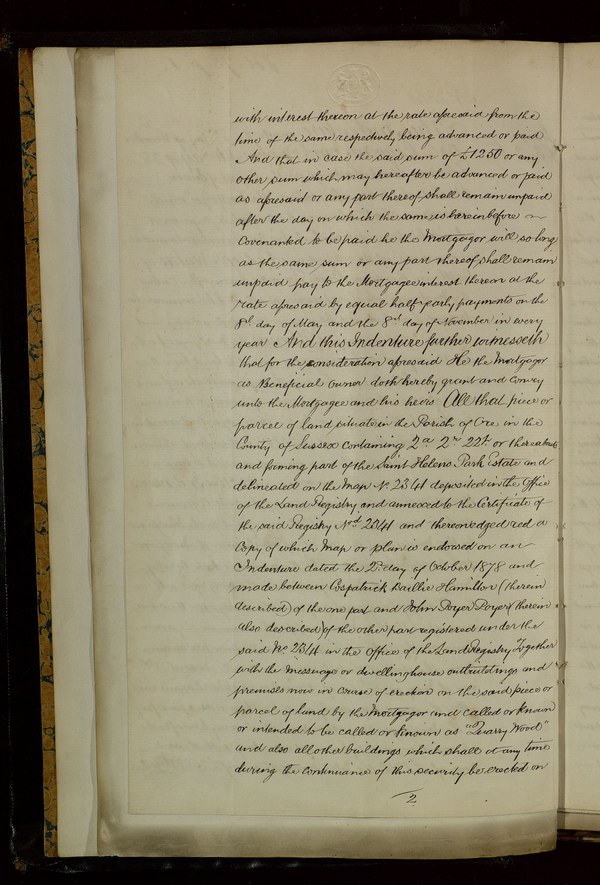 with interest thereon at the rate aforesaid from the
time of the same respectively being advanced or paid
And that in case the said sum of £1250 or any
other sum which may hereafter be advanced or paid
as aforesaid or any part thereof shall remain unpaid
after the day on which the same is hereinbefore
covenanted to be paid he the Mortgagor will so long
as the same sum or any part thereof shall remain
unpaid pay to the Mortgagee interest thereon at the
rate aforesaid by equal half yearly payments on the
8th day of May and the 8th day of November in every
year And this Indenture further witnesseth
that for the consideration aforesaid He the Mortgagor
as Beneficial Owner doth hereby grant and convey
unto the Mortgagee and his heirs All that piece or
parcel of land situate in the Parish of Ore in the
County of Sussex containing 2a 2r 22p or thereabouts
and forming part of the Saint Helens Park Estate and
delineated on the Map No. 2341 deposited in the Office
of the Land Registry and annexed to the Certificate of
the said Registry Nod 2341 and thereon edged red a
Copy of which Map or plan is endorsed on an
Indenture dated the 2d. day of October 1878 and
made between Cospatrick Baillie Hamilton (therein
described) of the one part and John Poyer Poyer (therein
also described) of the other part registered under the
said No. 2341 in the Office of the Land Registry Together
with the messuage or dwellinghouse outbuildings and
premises now in course of erection on the said piece or
parcel of land by the Mortgagor and called or known
or intended to be called or known as "Quarry Wood"
and also all other buildings which shall at any time
during the continuance of this security be erected on
2